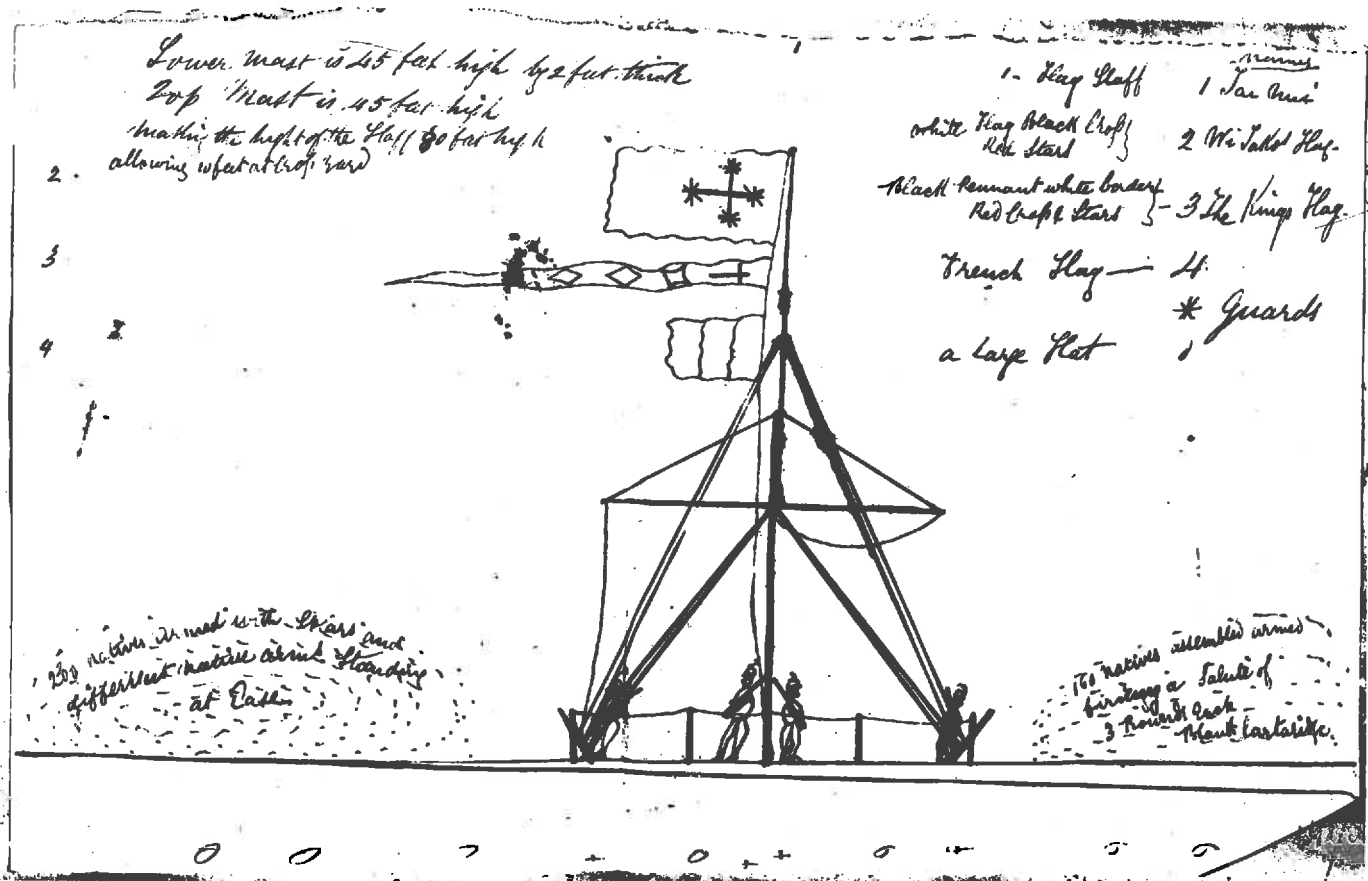 Lower mast is 45 feet high by 2 feet thick
Top Mast is 45 feet high
making the height of the Staff 80 feet high
allowing 10 feet at Cross yard
2
3
4
names
1 - Flag Staff 1
white Flag Black Cross Red Stars } 2 Wi Flag -
Black Pennant white border Red Cross & Stars } - 3 The Kings Flag.
French Flag — 4
* Guards
a Large Flat
200 natives armed with Spears and
different native arms Standing
at Ease
160 natives assembled armed
a Salute of
3 Rounds each
Blank Cartaridge.